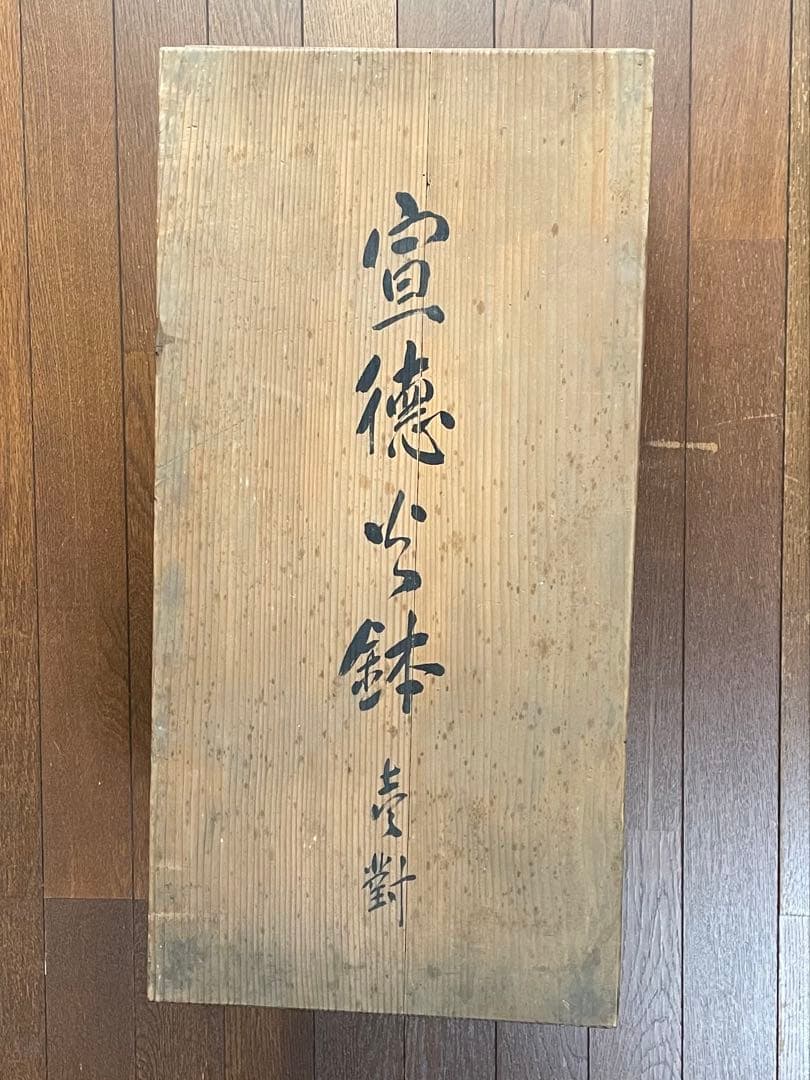 宣德火鉢 壹對